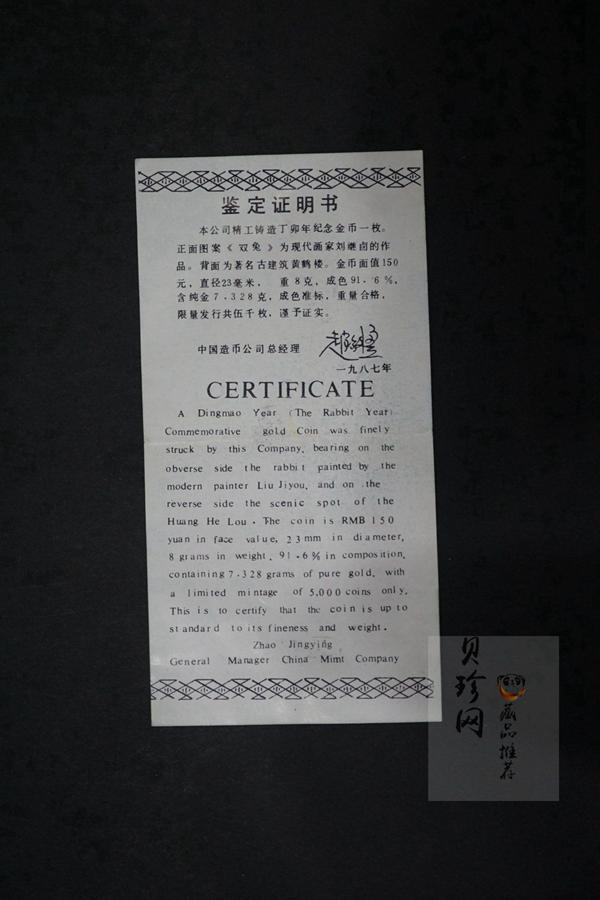 鉴定证明书
本公司精工铸造丁卯年纪念金币一枚。
正面图案《双兔》为现代画家刘继卣的作
品。背面为著名古建筑黄鹤楼。金币面值150
元，直径23毫米， 重8克，成色91.6%，
含纯金7.328克，成色准标，重量合格，
限量发行共伍千枚，谨予证实。
中国造币公司总经理
一九八七年
CERTIFICATE
A Dingmao Year (The Rabbit Year)
Commemorative gold Coin was finely
struck by this Company, bearing on the
obverse side the rabbit painted by the
modern painter Liu Jiyou, and on the
reverse side the scenic spot of the
Huang He Lou. The coin is RMB 150
yuan in face value, 23mm in diameter,
8 grams in weight, 91.6% in composition,
containing 7.328 grams of pure gold, with
a limited mintage of 5,000 coins only.
This is to certify that the coin is up to
standard to its fineness and weight.
Zhao Jingying
General Manager China Mimt Company
贝珍网
藏品推荐